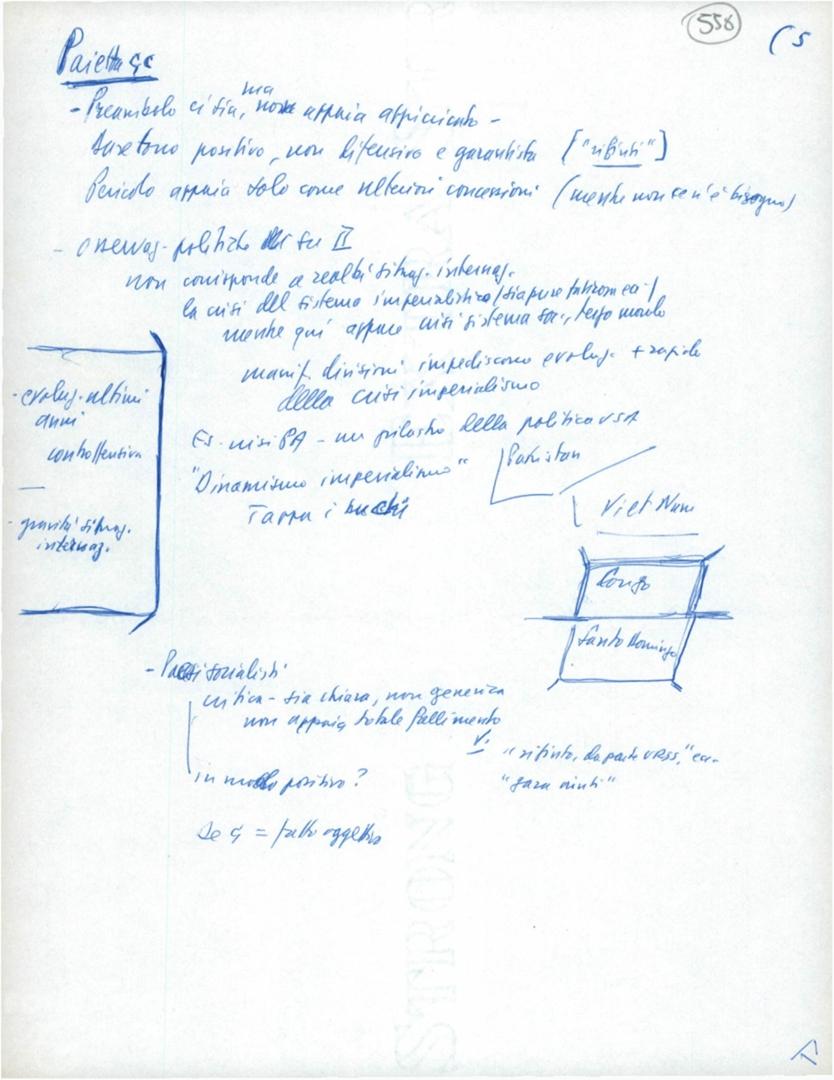 558
(5
Paietta GC
- Preambolo ci sia, ma non appaia appiccicato -
Dare tono positivo, non difensivo e garantista ["rifiuti"]
Pericolo appaia solo come ulteriori concessioni (mentre non se n'è bisogno)
- Osservaz. politiche su II
non corrisponde a realtà situaz. internaz.
la crisi del sistema imperialistico / sia pure
mentre qui appare crisi sistema soc., terzo mondo
manif. divisioni impediscono evoluz. + rapida
della crisi imperialismo
- evoluz. ultimi
anni
controffensiva
- gravità situaz.
internaz.
Es. crisi PA - un pilastro della politica USA
"Dinamismo imperialismo"
Tappa i buchi
Pakistan
Viet Nam
Congo
Santo Domingo
- Paesi socialisti
critica - sia chiara, non generica
non appaia totale fallimento
V. "rifiuto, da parte URSS," ecc.
"gara aiuti"
in modo positivo?
Se = fatto oggettivo
STRONG